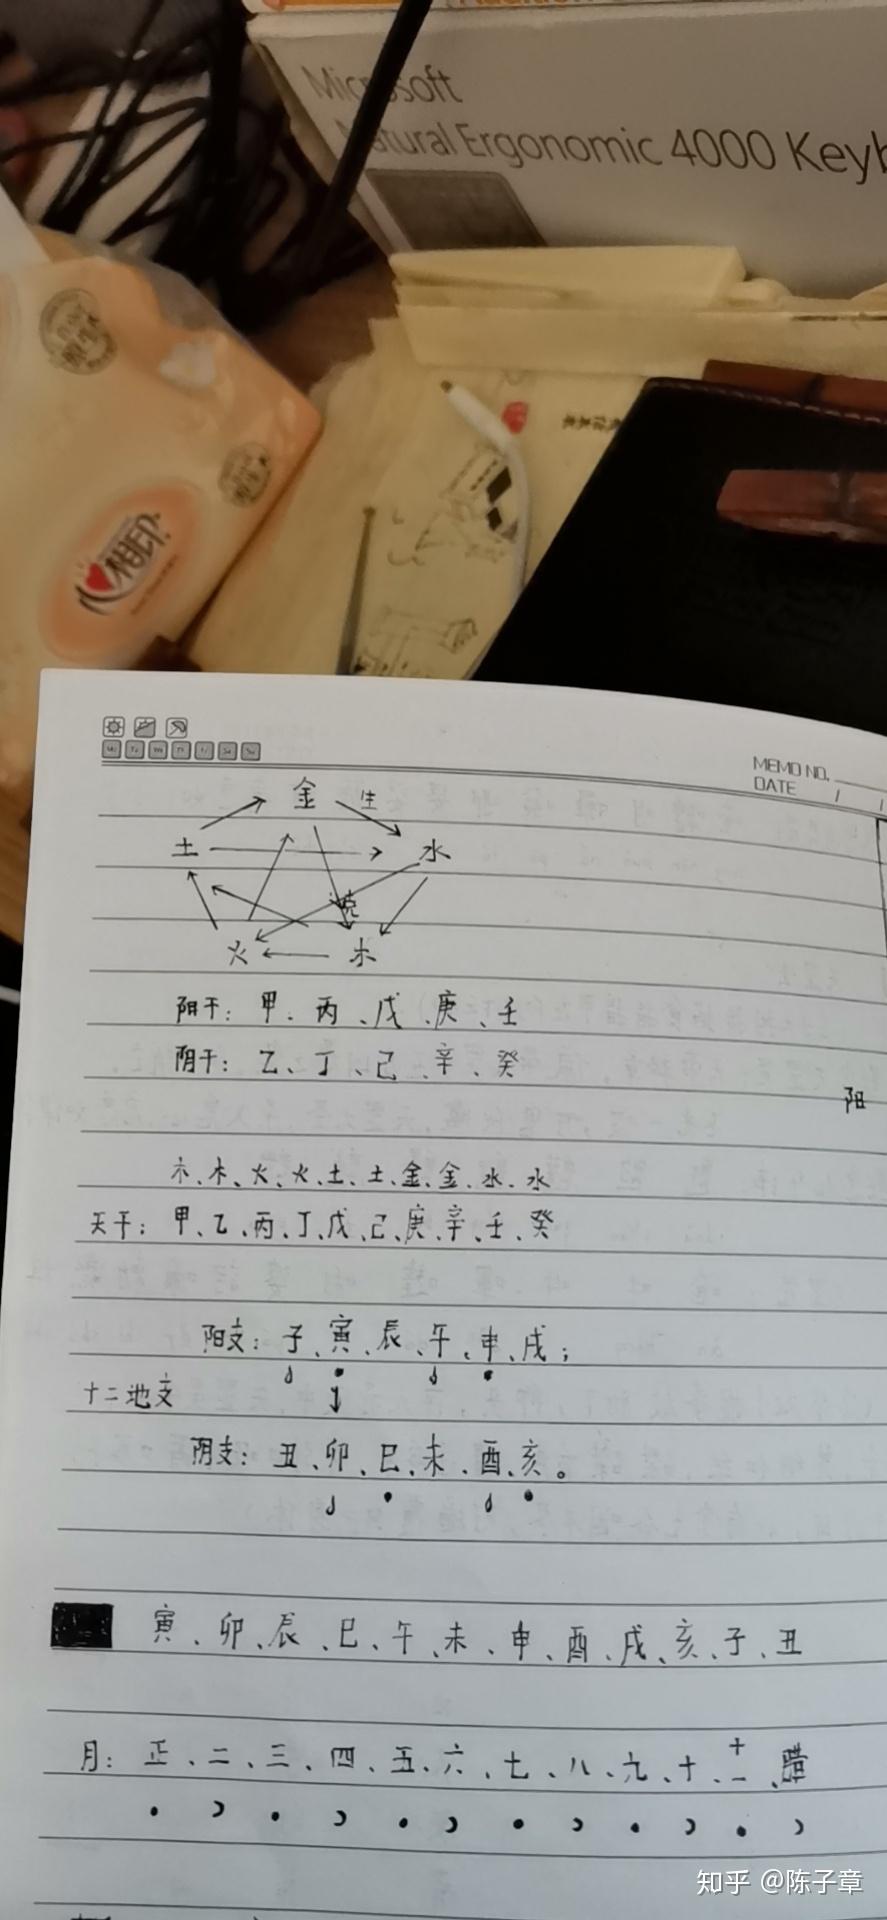 Microsoft
Natural Ergonomic 4000 Keyb
心相印
MEMO NO.
DATE / /
金 生
土 水
克
火 木
阳干：甲、丙、戊、庚、壬
阴干：乙、丁、己、辛、癸
阳
木、木、火、火、土、土、金、金、水、水
天干：甲、乙、丙、丁、戊、己、庚、辛、壬、癸
阳支：子、寅、辰、午、申、戌；
十二地支
阴支：丑、卯、巳、未、酉、亥。
寅、卯、辰、巳、午、未、申、酉、戌、亥、子、丑
月：正、二、三、四、五、六、七、八、九、十、十一、腊
知乎 @陈子章